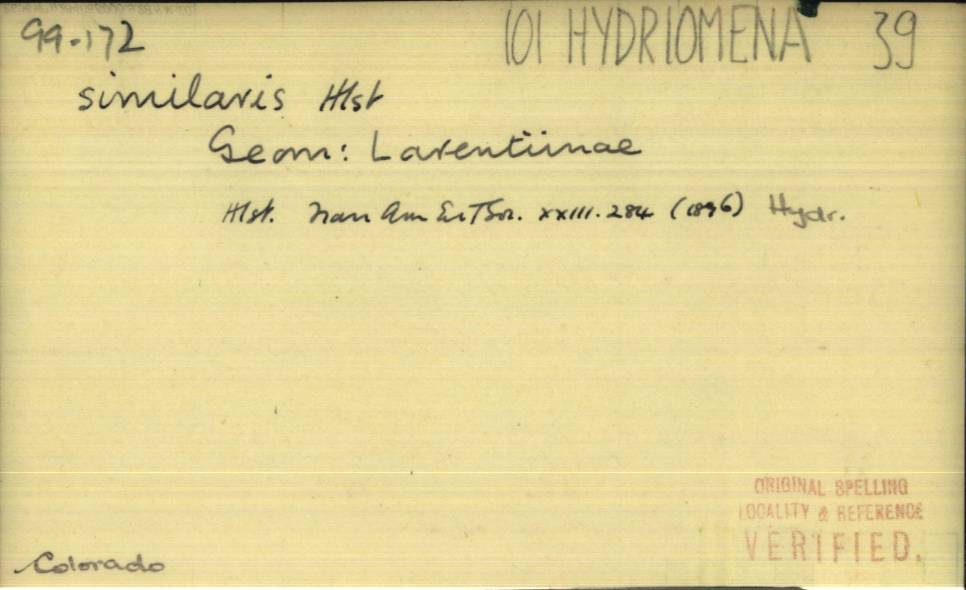 99-172 101 HYDRIOMENA 39
similaris Hlst
Geom: Larentiinae
Hlst. Tran Am Ent Soc. XXIII. 284 (1896) Hydr.
ORIGINAL SPELLING
LOCALITY & REFERENCE
VERIFIED.
Colorado